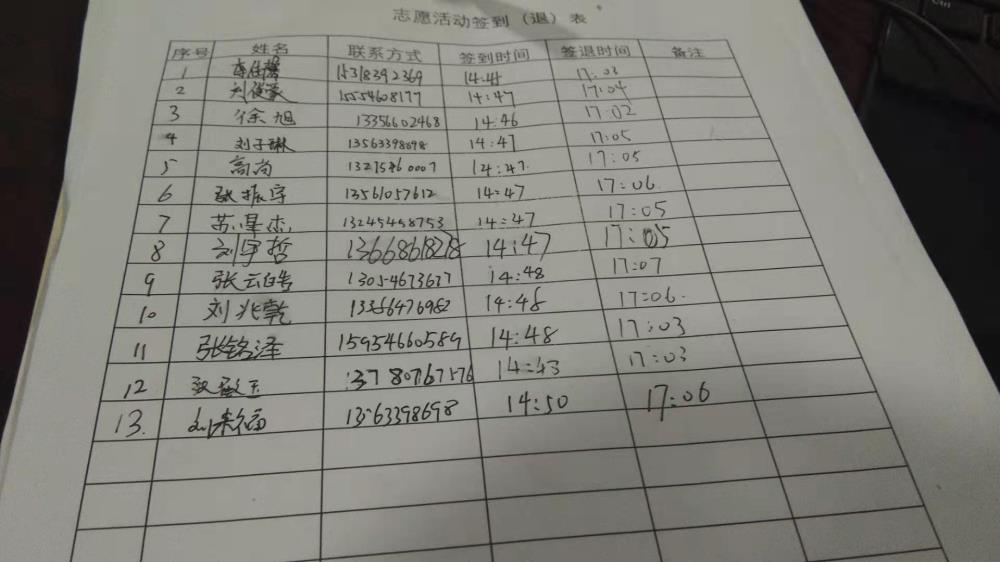 志愿活动签到（退）表
序号 姓名 联系方式 签到时间 签退时间 备注
1 15318392369 14:44 17:03
2 刘俊豪 15554608177 14:47 17:04
3 徐旭 13356602468 14:46 17:02
4 刘子琳 13563398698 14:47 17:05
5 高尚 14:47 17:05
6 张振宇 13561057612 14:47 17:06
7 苏星杰 13245458753 14:47 17:05
8 刘宇哲 13668618218 14:47 17:05
9 张云皓 13054673677 14:48 17:07
10 刘兆乾 13356476982 14:48 17:06
11 张铭泽 15954660589 14:48 17:03
12 13780767576 14:43 17:03
13. 13563398698 14:50 17:06